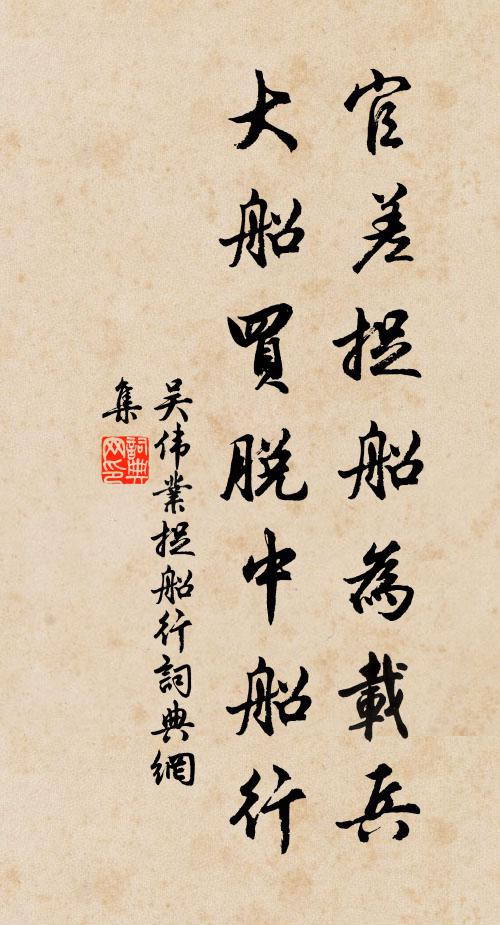 官差捉船為載兵
大船買脱中船行
吴伟業捉船行詞典網
集
詞典
网印